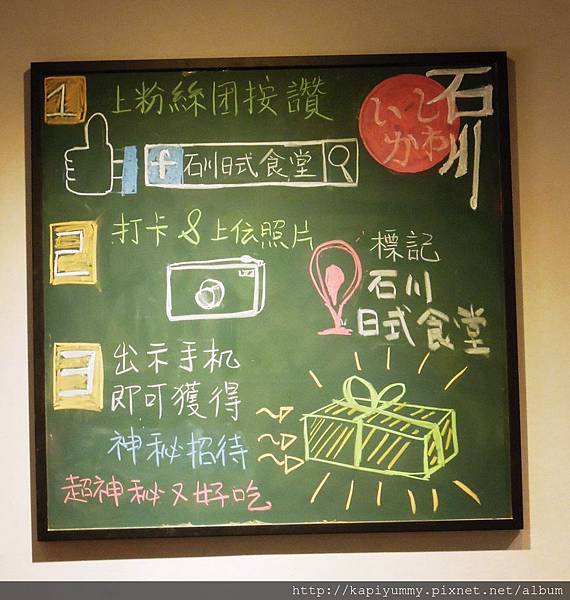 1 上粉絲团按讚
いしかわ
石川
f 石川日式食堂
2 打卡&上伝照片
標記
石川
日式食堂
3 出示手机
即可獲得
神秘招待
超神秘又好吃
http://kapiyummy.pixnet.net/album